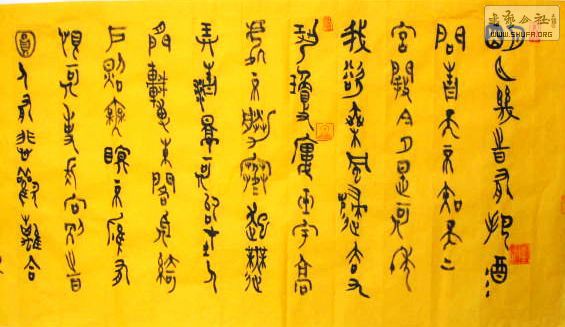 明月幾時有把酒
問青天不知天上
宮闕今夕是何年
我欲乘風歸去又
恐瓊樓玉宇高
處不勝寒起舞
弄清影何似在人
間轉朱閣低綺
戶照無眠不應有
恨何事長向別時
圓人有悲歡離合
书艺公社
WWW.SHUFA.ORG